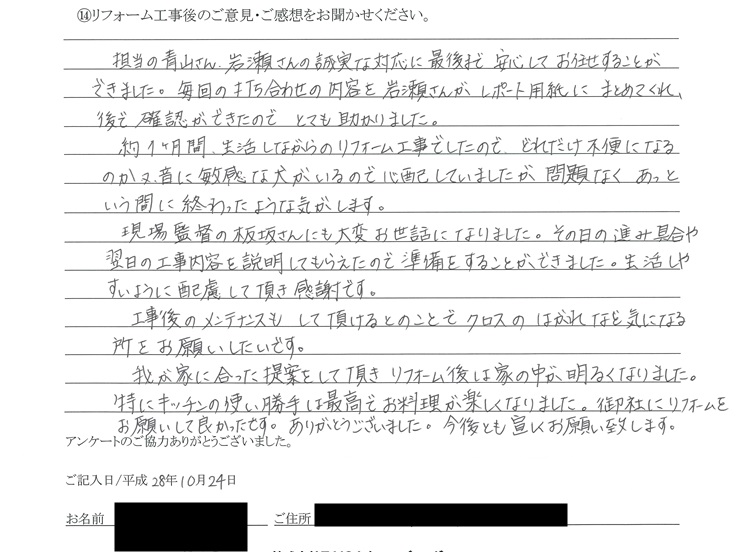 ⑭リフォーム工事後のご意見・ご感想をお聞かせください。
担当の青山さん、岩瀬さんの誠実な対応に最後まで安心してお任せすることが
できました。毎回の打ち合わせの内容を岩瀬さんがレポート用紙にまとめてくれ、
後で確認ができたのでとても助かりました。
約1ヶ月間、生活しながらのリフォーム工事でしたので、どれだけ不便になる
のか又、音に敏感な犬がいるので心配していましたが問題なくあっと
いう間に終わったような気がします。
現場監督の板坂さんにも大変お世話になりました。その日の進み具合や
翌日の工事内容を説明してもらえたので準備をすることができました。生活しや
すいように配慮して頂き感謝です。
工事後のメンテナンスもして頂けるとのことでクロスのはがれなど気になる
所をお願いしたいです。
我が家に合った提案をして頂きリフォーム後は家の中が明るくなりました。
特にキッチンの使い勝手は最高でお料理が楽しくなりました。御社にリフォームを
お願いして良かったです。ありがとうございました。今後とも宜しくお願い致します。
アンケートのご協力ありがとうございました。
ご記入日/平成 28年10月24日
お名前 ご住所